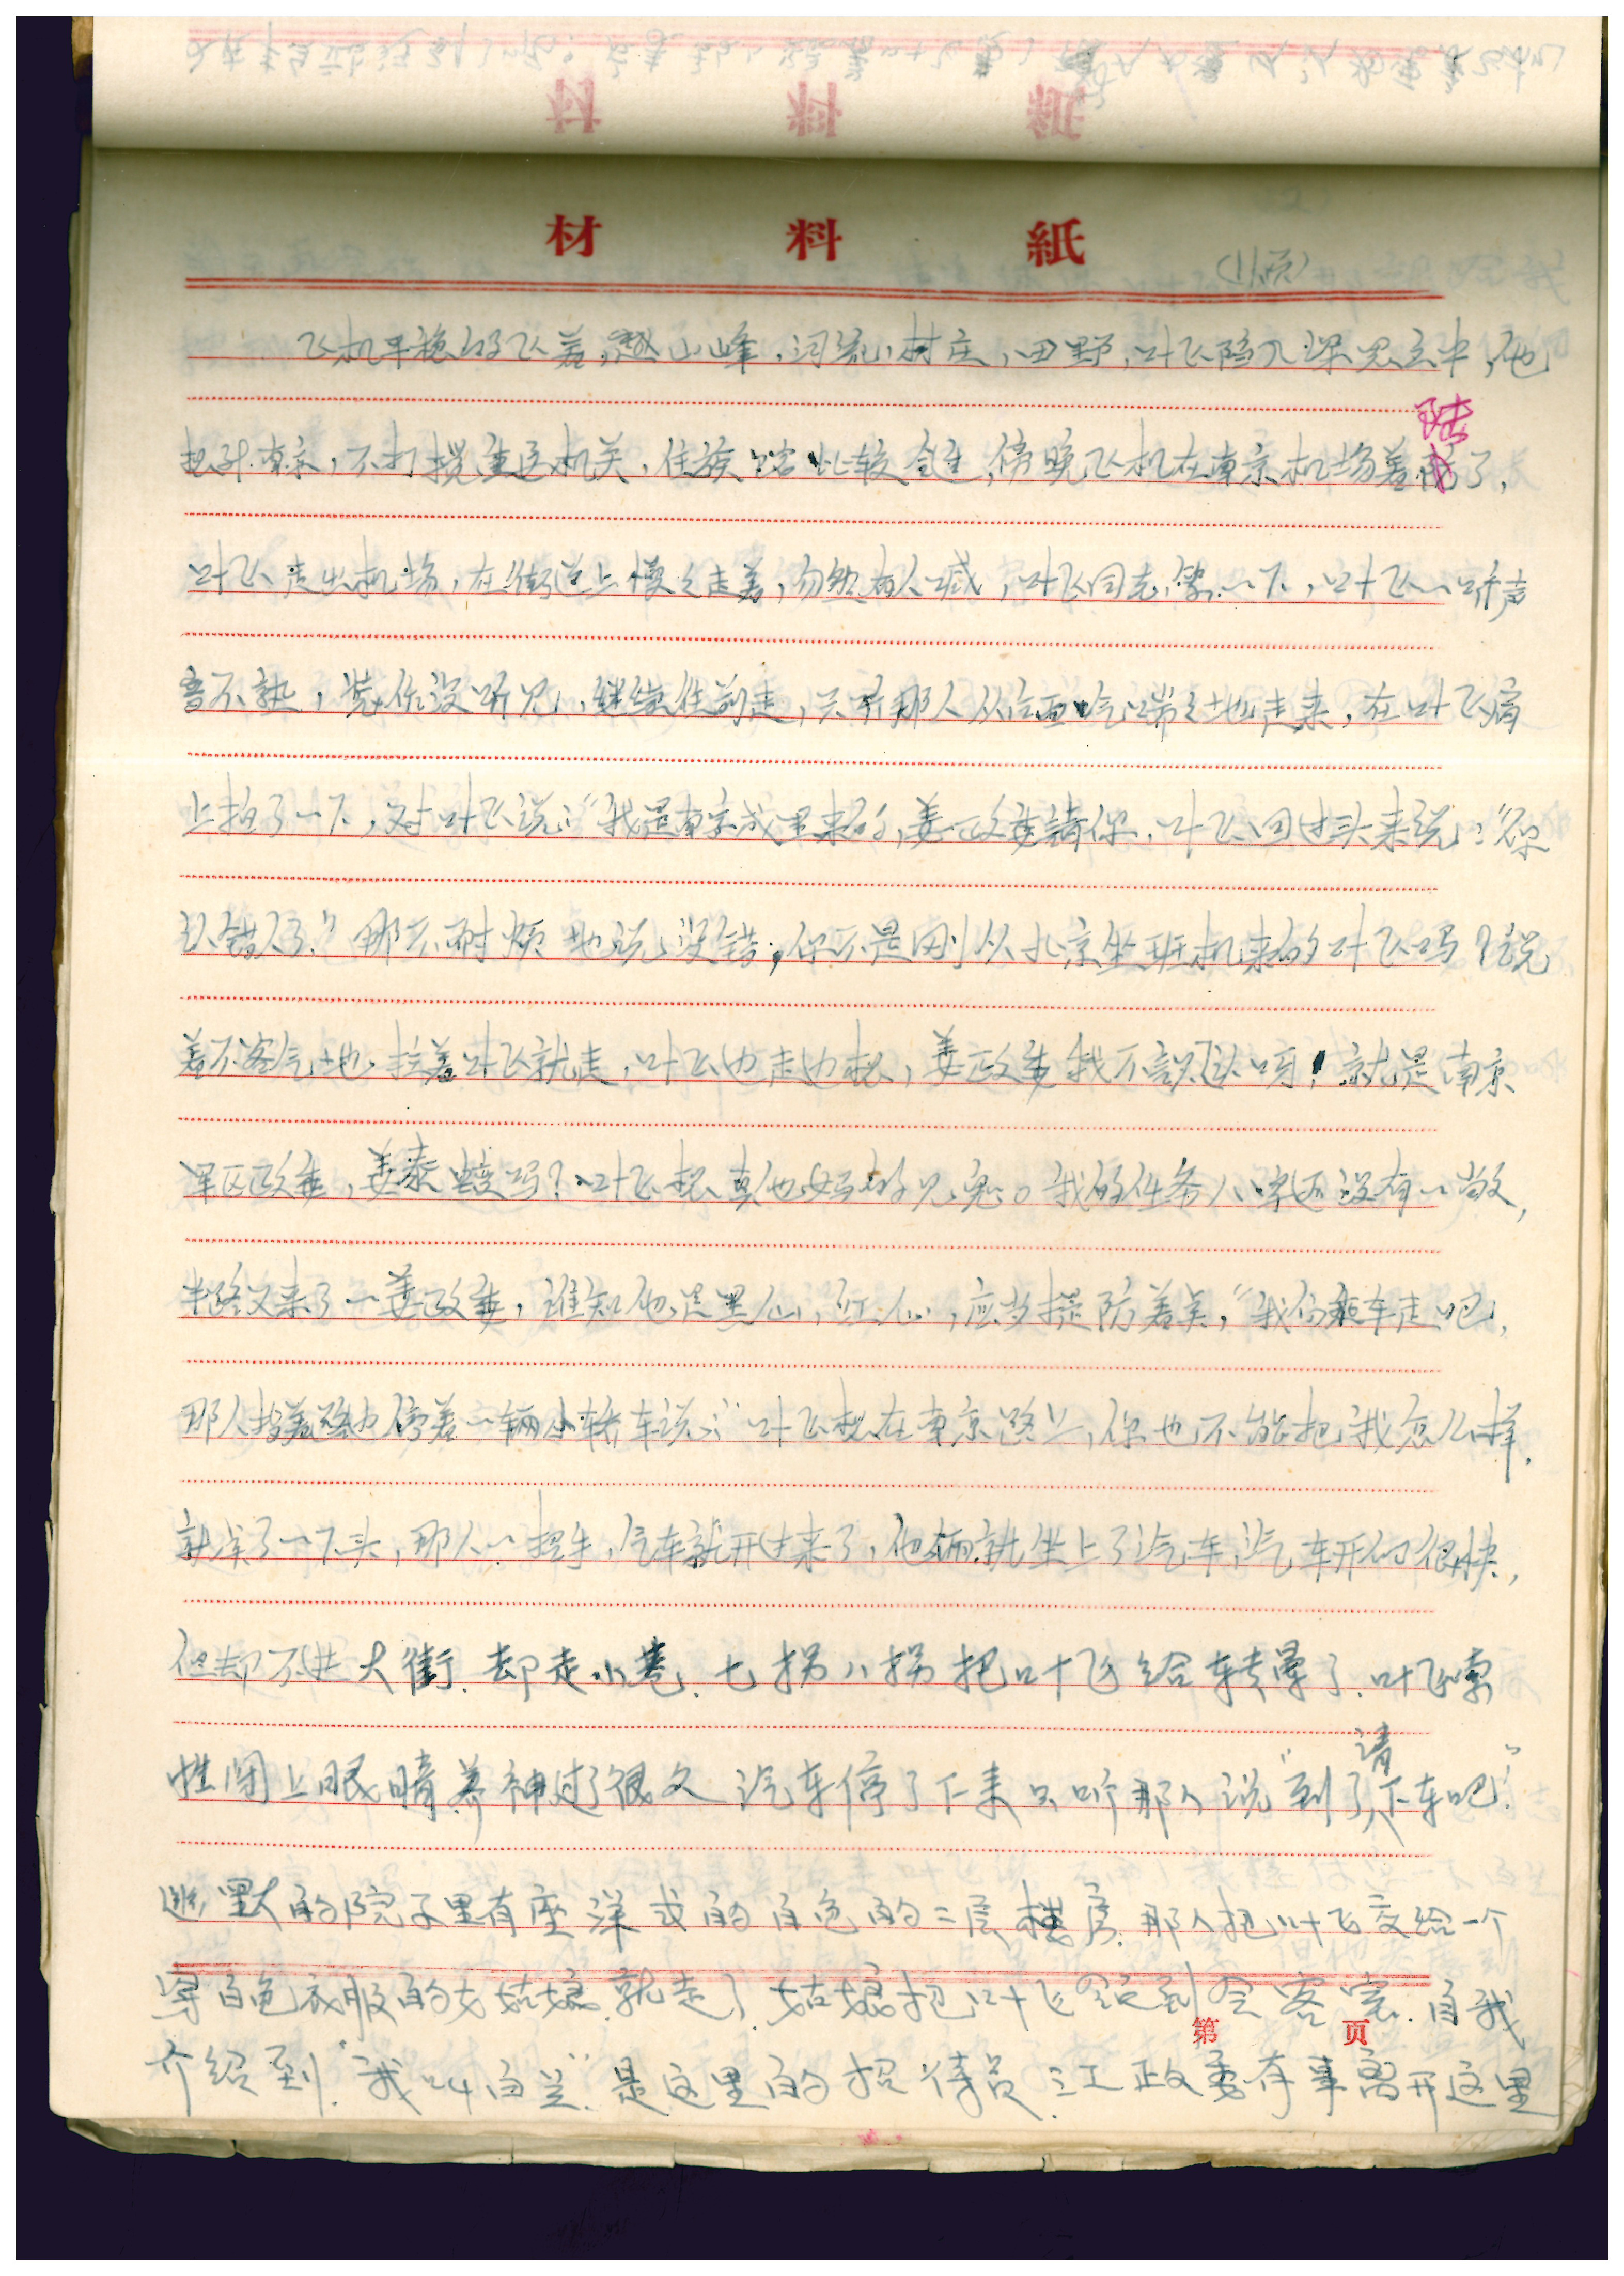 材料紙
(11页)
飞机平稳的飞着,越山峰,河流,村庄,田野,叶飞陷入深思之中,他
想到南京,不打搅军区机关,住旅馆比较合适,傍晚飞机在南京机场着陆了,
叶飞走出机场,在街道上慢之走着,忽然有人喊,叶飞同志,等一下,叶飞一听声
音不熟,装作没听见,继续往前走,只听那人从后面气喘之地走来,在叶飞肩
上拍了一下,对叶飞说:“我是南京戒里来的,姜政委请你,叶飞回过头来说:“你
认错人了.”那不耐烦地说:没错,你不是刚从北京坐班机来的叶飞吗?说
着不客气地拉着叶飞就走,叶飞边走边想,姜政委我不认识呀!就是南京
军区政委,姜泰嗄吗?叶飞想真他妈的见鬼。我的任务八字还没有一撇,
半路又来了一姜政委,谁知他是黑仙,红仙,应当提防着点,“我们乘车走吧,
那人指着路边停着一辆小轿车说:”叶飞想在南京路上,你也不能把我怎么样.
就点了一下头,那人一招手,汽车就开过来了,他俩就坐上了汽车,汽车开的很快,
但却不进大街.却走小巷.七拐八拐把叶飞给转晕了.叶飞索
性闭上眼睛养神过了很久 汽车停了下来只听那人说“到了请下车吧.”
幽默的院子里有座洋式的白色的二层楼房.那人把叶飞交给一个
穿白色衣服的女姑娘.就走了.姑娘把叶飞领到会客室.自我
第 页
介绍到.“我叫白兰”.是这里的招待员.江政委有事离开这里